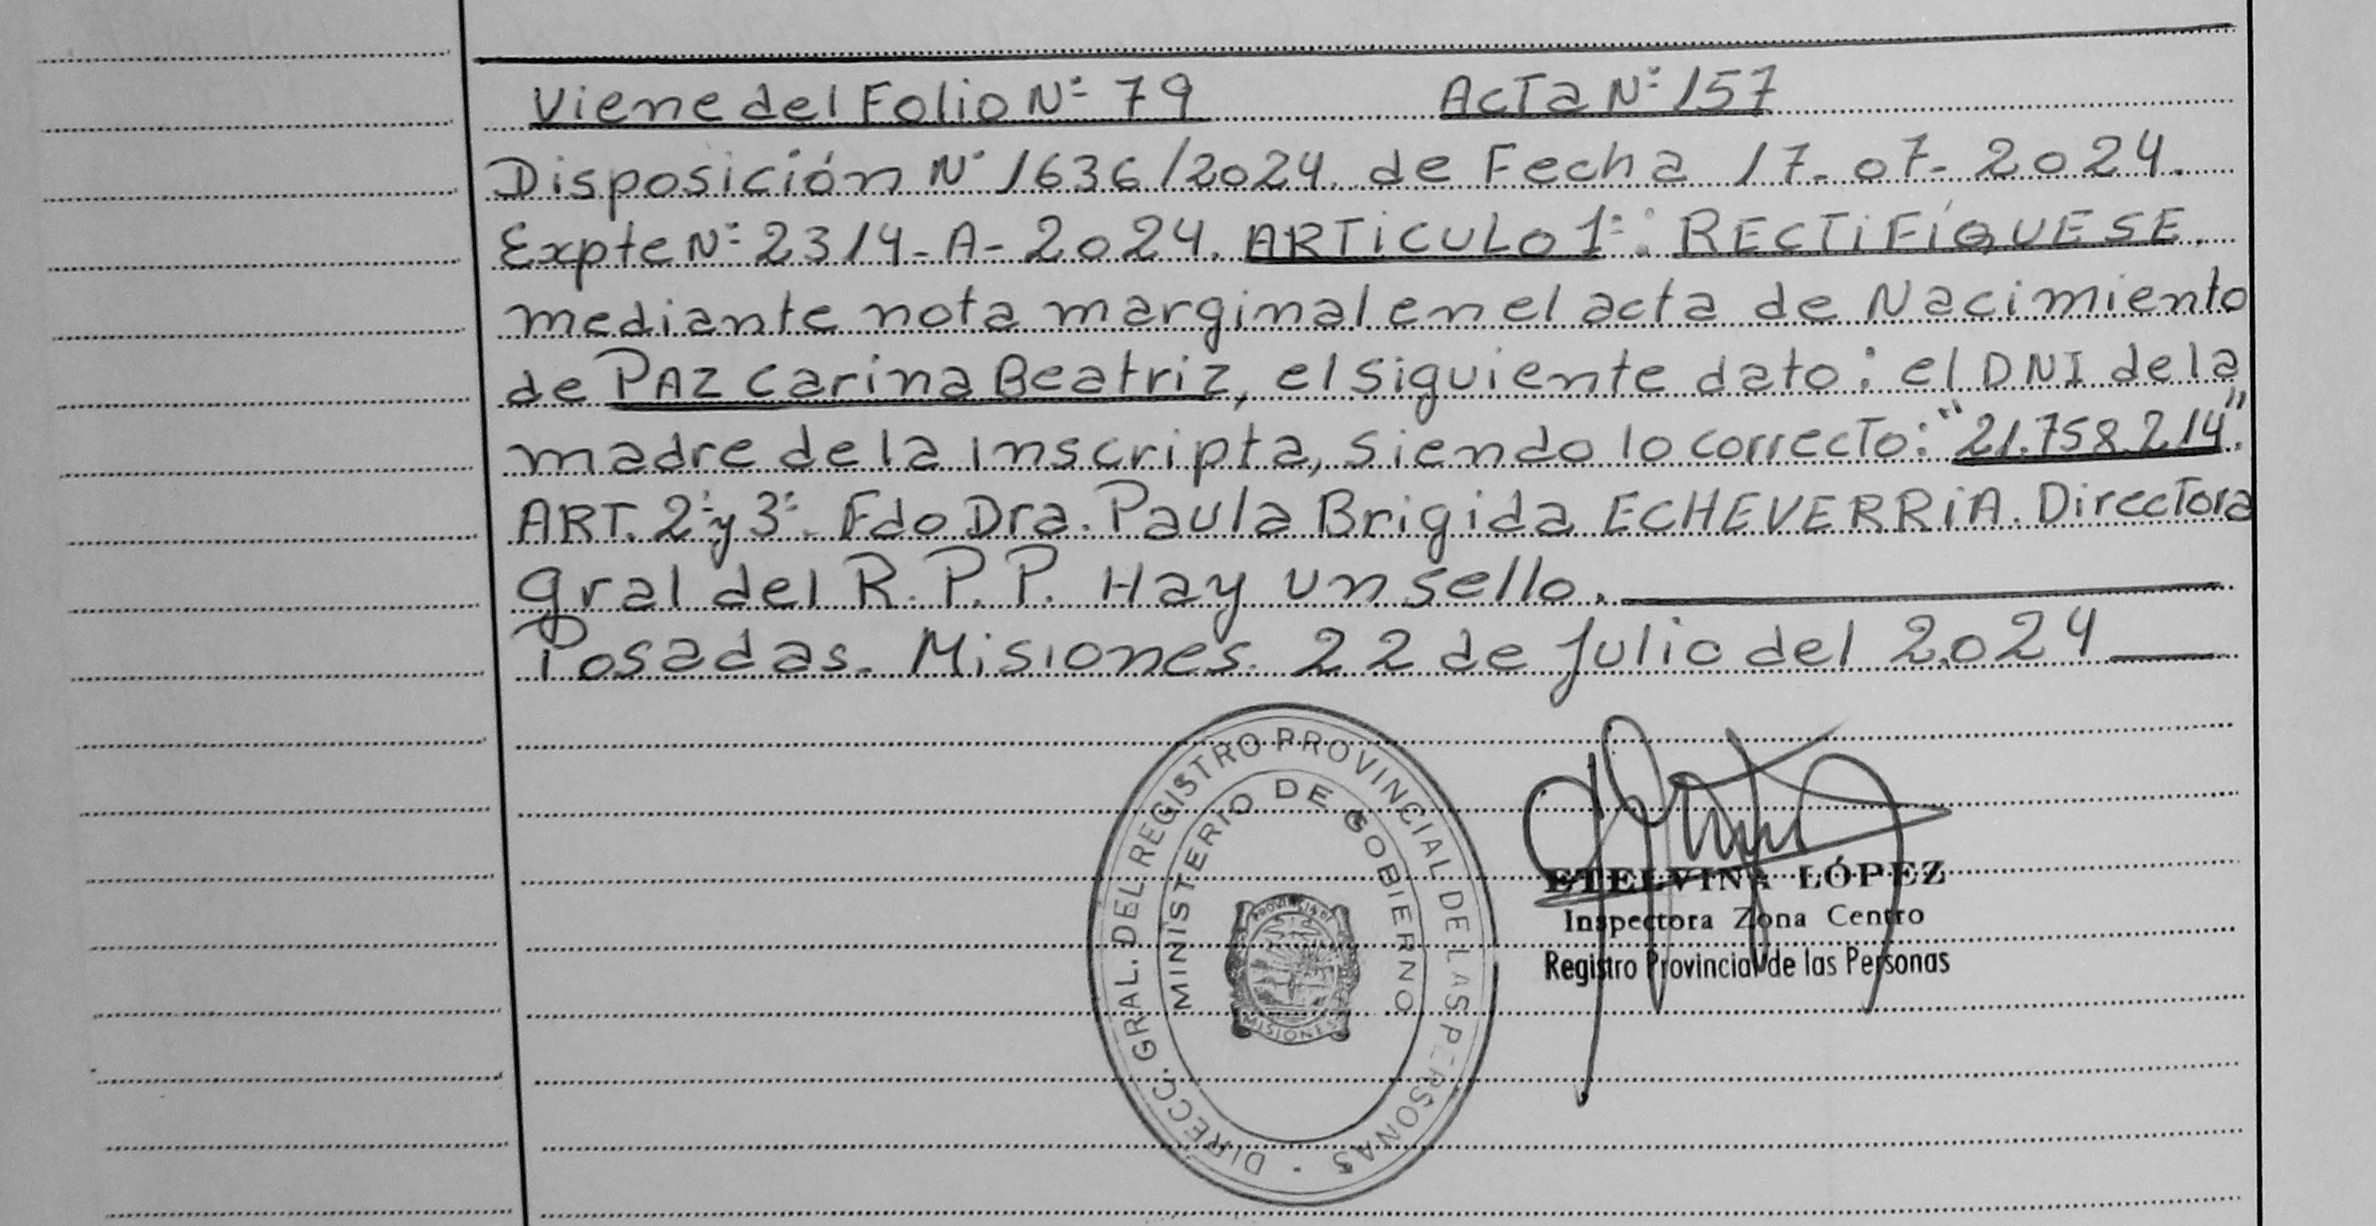 Viene del Folio Nº 79 Acta Nº 157
Disposición Nº 1636/2024. de Fecha 17-07-2024.
Expte Nº 2314-A-2024. ARTICULO 1º: RECTIFÍQUESE.
mediante nota marginal en el acta de Nacimiento
de PAZ Carina Beatriz, el siguiente dato: el DNI de la
madre de la inscripta, siendo lo correcto: "21.758.214".
ART. 2º y 3º. Fdo Dra. Paula Brigida ECHEVERRIA. Directora
gral del R.P.P. Hay un sello.
Posadas. Misiones. 22 de Julio del 2024
DIRECC. GRAL. DEL REGISTRO PROVINCIAL DE LAS PERSONAS
MINISTERIO DE GOBIERNO
PROVINCIA DE
MISIONES
ETELVINA LÓPEZ
Inspectora Zona Centro
Registro Provincial de las Personas